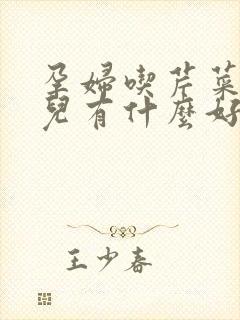 孕婦喫芹菜
兒有什麼好
王少春